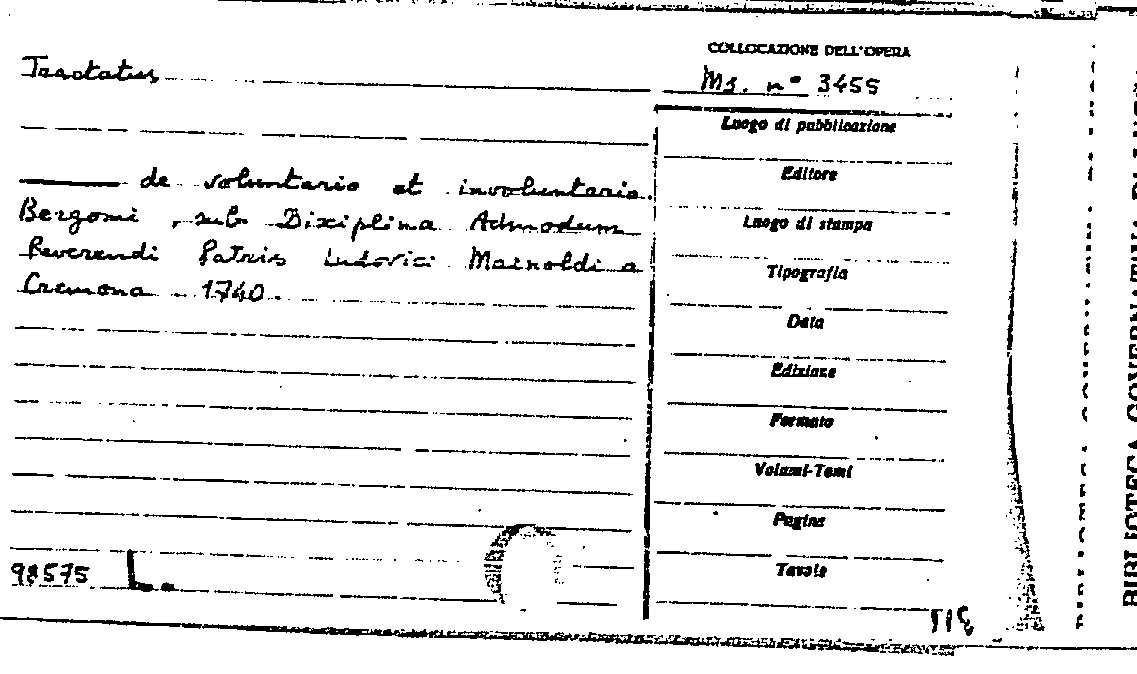 Tractatus
de voluntario et involuntario.
Bergomi, sub Disciplina Admodum
Reverendi Patris Ludovici Mainoldi a
Cremona 1740.
98575
COLLOCAZIONE DELL'OPERA
Ms. n° 3455
Luogo di pubblicazione
Editore
Luogo di stampa
Tipografia
Data
Edizione
Formato
Volumi-Tomi
Pagine
Tavole